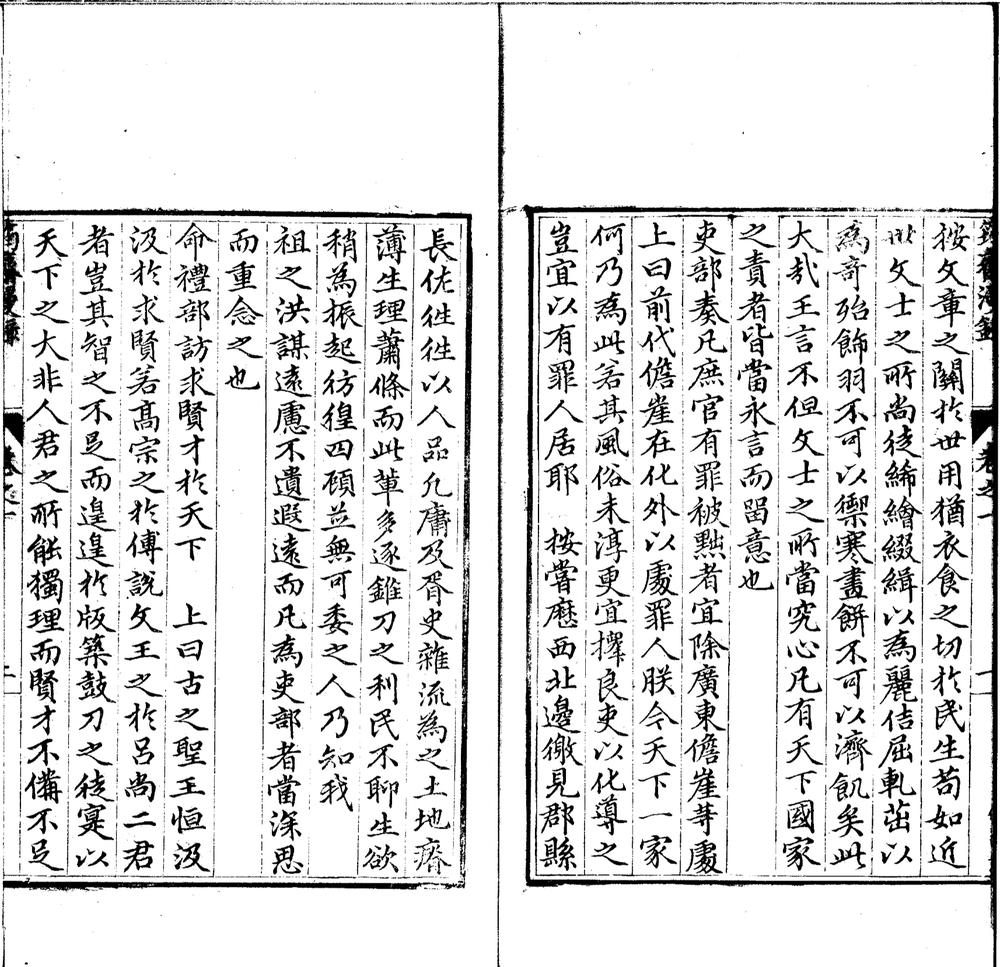 按文章之關於世用猶衣食之切於民生苟如近
世文士之所尚徒絺繪綴緝以為麗佶屈軋茁以
為奇殆飾羽不可以禦寒畫餅不可以濟飢矣此
大哉王言不但文士之所當究心凡有天下國家
之責者皆當永言而留意也
吏部奏凡庶官有罪被黜者宜除廣東儋崖等處
上曰前代儋崖在化外以處罪人朕今天下一家
何乃為此若其風俗未淳更宜擇良吏以化導之
豈宜以有罪人居耶　按嘗歷西北邊徼見郡縣
長佐徃徃以人品凡庸及胥史雜流為之土地瘠
薄生理蕭條而此輩多逐錐刀之利民不聊生欲
稍為振起彷徨四顧並無可委之人乃知我
祖之洪謀遠慮不遺遐遠而凡為吏部者當深思
而重念之也
命禮部訪求賢才於天下　上曰古之聖王恒汲
汲於求賢若髙宗之於傅説文王之於呂尚二君
者豈其智之不足而遑遑於版築鼓刀之徒寔以
天下之大非人君之所能獨理而賢才不備不足
卷之一